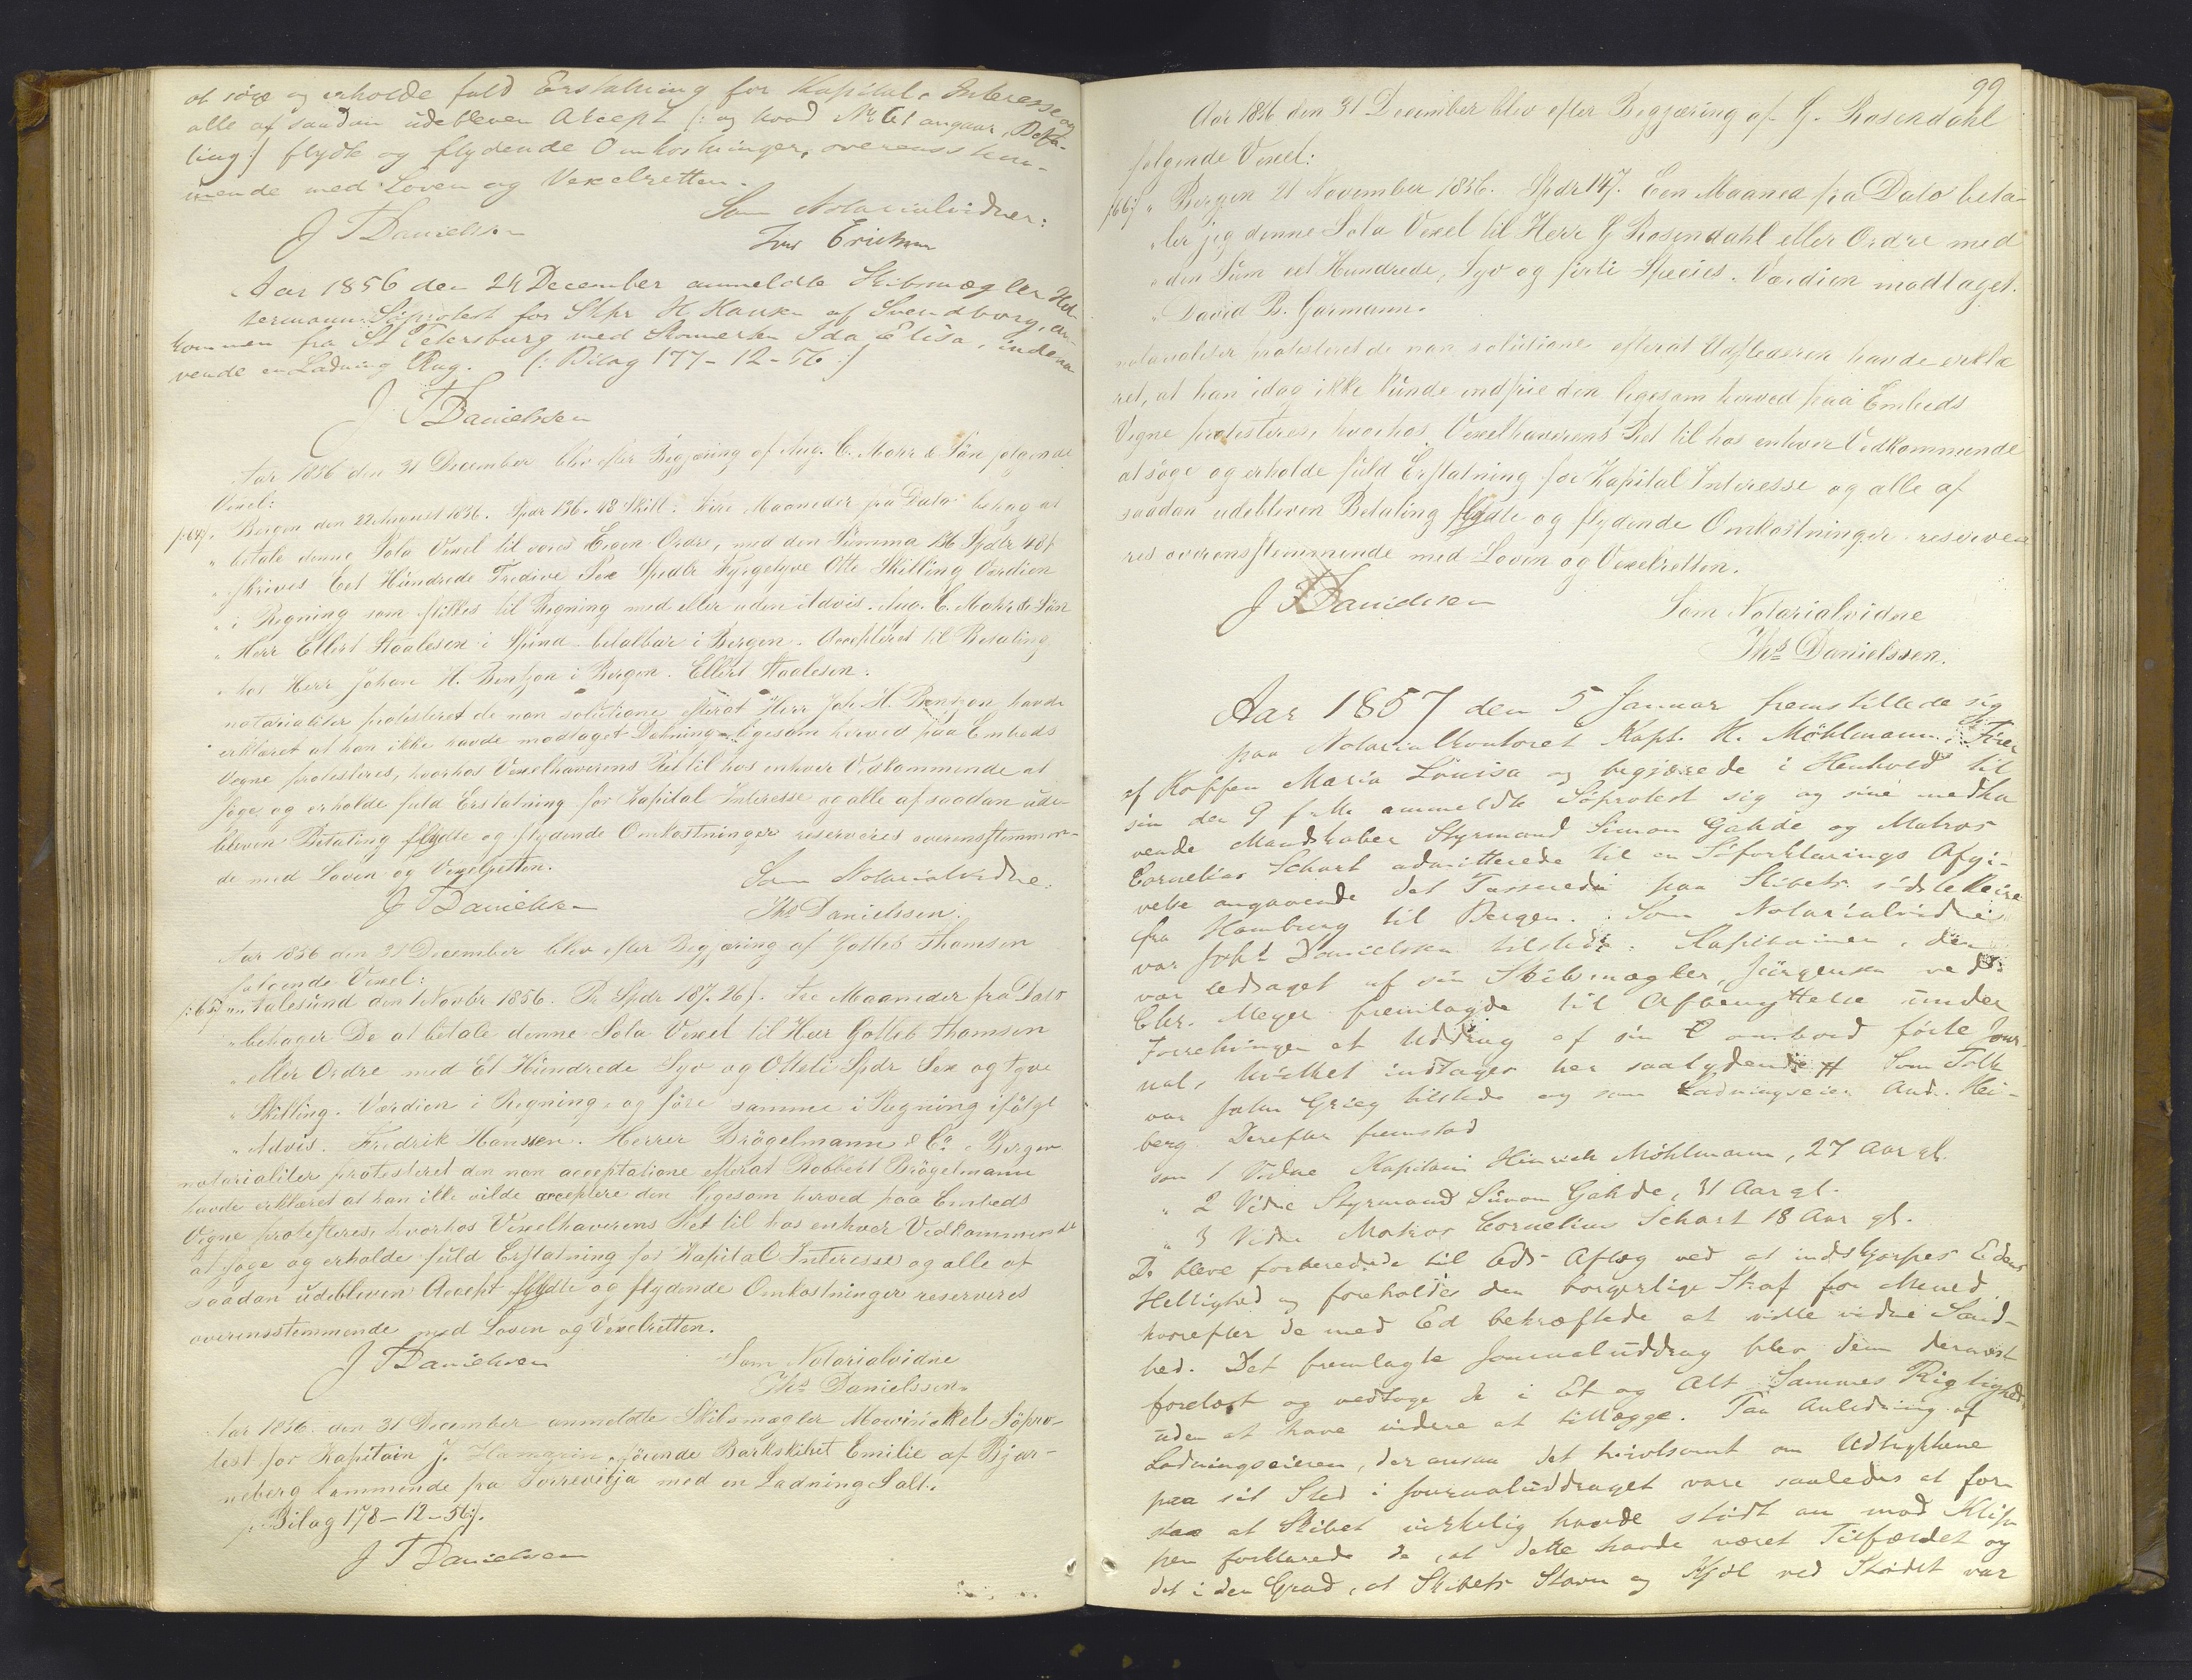 at søge og erholde fuld Erstatning for Kapital, Interesse og
alle af saadan udebleven Accept (: og hvad No 61 angaar, Beta-
ling :) flydte og flydende Omkostninger, overensstem-
mende med Loven og Vexelretten.
J T Danielssen
Som Notarialvidner:
Erichsen
Aar 1856 den 24 December anmeldte Skibsmægler
termann Søprotest for Skpr H. Hansen af Svendborg, an-
kommen fra St Petersburg med Skonnerten Ida Elisa, indeha-
vende en Ladning Rug. (: Bilag 177-12-56 :)
J T Danielssen
Aar 1856 den 31 December blev efter Begjæring af Aug. C. Mohr & Søn følgende
Vexel:
/:64/: " Bergen den 22 August 1856. Spdr 136. 48 Skill. Fire Maaneder fra Dato behag at
" betale denne Sola Vexel til vores Egen Ordre, med den Summa 136 Spdlr 48 f
" skrives Eet Hundrede Tredive Sex Spedlr Fyrgetyve Otte Skilling Værdien
" i Regning som stilles til Regning med eller uden Advis. Aug. C. Mohr & Søn
" Herr Ellert Staalesen i Spind betalbar i Bergen. Accepteret til Betaling
" hos Herr Johan H. Bentzon i Bergen. Ellert Staalesen.
notarialiter protesteret de non solutione efterat Herr Joh. H. Bentzon havde
erklæret at han ikke havde modtaget Dækning ligesom herved paa Embeds
Vegne protesteres, hvorhos Vexelhaverens Ret til hos enhver Vedkommende at
søge og erholde fuld Erstatning for Kapital Interesse og alle af saadan ude-
bleven Betaling flydte og flydende Omkostninger reserveres overensstemmen-
de med Loven og Vexelretten.
J T Danielssen
Som Notarialvidne.
Ths Danielssen.
Aar 1856 den 31 December blev efter Begjæring af Gotleb Thomsen
følgende Vexel:
/:65/: " Aalesund den 1 Novbr 1856. Pr Spdr 187. 26 f. Tre Maaneder fra Dato
" behager De at betale denne Sola Vexel til Herr Gotleb Thomsen
" eller Ordre med Et Hundrede Syv og Otteti Spdr Sex og tyve
" Skilling. Værdien i Regning, og føre samme i Regning ifølge
" Advis. Fredrik Hanssen. Herrer Brögelmann & Co. Bergen
notarialiter protesteret den non acceptatione efterat Robbert Brögelmann
havde erklæret at han ikke vilde acceptere den ligesom herved paa Embeds
Vegne protesteres, hvorhos Vexelhaverens Ret til hos enhver Vedkommende
at søge og erholde fuld Erstatning for Kapital Interesse og alle af
saadan udebleven Accept flydte og flydende Omkostninger reserveres
overensstemmende med Loven og Vexelretten.
J T Danielssen
Som Notarialvidne
Ths Danielssen.
Aar 1856 den 31 December anmeldte Skibsmægler Mowinckel Søpro-
test for Kapitain J. førende Barkskibet Emilie af Bjør-
neberg kommende fra Torrevieja med en Ladning Salt.
/: Bilag 178-12-56:/.
J T Danielssen
99
Aar 1856 den 31 December blev efter Begjæring af G. Rosendahl
følgende Vexel:
/:66/: " Bergen 21 November 1856. Spdr 147. Een Maaned fra Dato beta-
" ler jeg denne Sola Vexel til Herr G Rosendahl eller Ordre med
" den Sum eet Hundrede, Syv og firti Species. Værdien modtaget.
" David B. Garmann.
notarialiter protesteret de non solutione efterat Udstederen havde erklæ
ret, at han idag ikke kunde indfrie den ligesom herved paa Embeds
Vegne protesteres, hvorhos Vexelhaverens Ret til hos enhver Vedkommende
at søge og erholde fuld Erstatning for Kapital Interesse og alle af
saadan udebleven Betaling flydte og flydende Omkostninger reserve
res overensstemmende med Loven og Vexelretten.
J T Danielssen
Som Notarialvidne
Ths Danielssen.
Aar 1857 den 5 Januar fremstillede sig
paa Notarialkontoret Kapt. H. Möhlmann, Fører
af Koffen Maria Louisa og begjærede i Henhold til
sin den 9 f. M. anmeldte Søprotest sig og sine medha
vende Mandskaber Styrmand Simon Gahde og Matros
Cornelius Schart admitterede til en Søforklarings Afgi-
velse angaaende det Passerede paa Skibets sidste Reise
fra Hamburg til Bergen. Som Notarialvidne
var Danielssen tilstede. Kapitainen, der
var ledsaget af sin Skibsmægler, Jürgensen ved
Chr. Meyer fremlagde til Afbenyttelse under
Forretningen et Uddrag af sin ombord førte Jour-
nal, hvilket indtages her saalydende # Som Tolk
var John Grieg tilstede og som Ladningseier And. Hei-
berg Derefter fremstod
som 1 Vidne Kapitain Hinrich Möhlmann, 27 Aar gl.
" 2 Vidne Styrmand Simon Gahde, 31 Aar gl.
" 3 Vidne Matros Cornelius Schart 18 Aar gl.
De bleve forberedede til Eds Aflæg ved at indskjærpes Edens
Hellighed og foreholdes den borgerlige Straf for Meened
hvorefter de med Ed bekræftede at ville vidne Sand-
hed. Det fremlagte Journaluddrag blev dem dernæst
forelæst og vedtoge de i Et og Alt Sammes Rigtighed
uden at have videre at tillægge. Paa Anledning af
Ladningseieren, der ansaa det tvivlsomt om Udtrykkene
paa sit Sted i Journaluddraget vare saaledes at for
staa at Skibet virkelig havde stødt an mod Klip
pen forklarede de, at dette havde været Tilfældet og
det i den Grad, at Skibets Stævn og Kjøl ved Stødet var